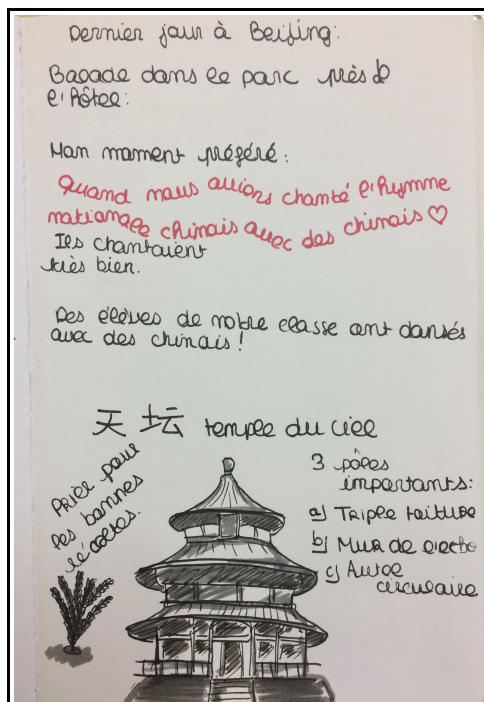 Dernier jour à Beijing:
Balade dans le parc près de
l'hôtel:
Mon moment préféré:
Quand nous avions chanté l'hymne
nationale chinois avec des chinois ♡
Ils chantaient
très bien.
Des élèves de notre classe ont dansés
avec des chinois!
天坛 temple du ciel
Prier pour
les bonnes
récoltes.
3 pôles
importants:
a) Triple toiture
b) Mur de l'echo
c) Autel
circulaire